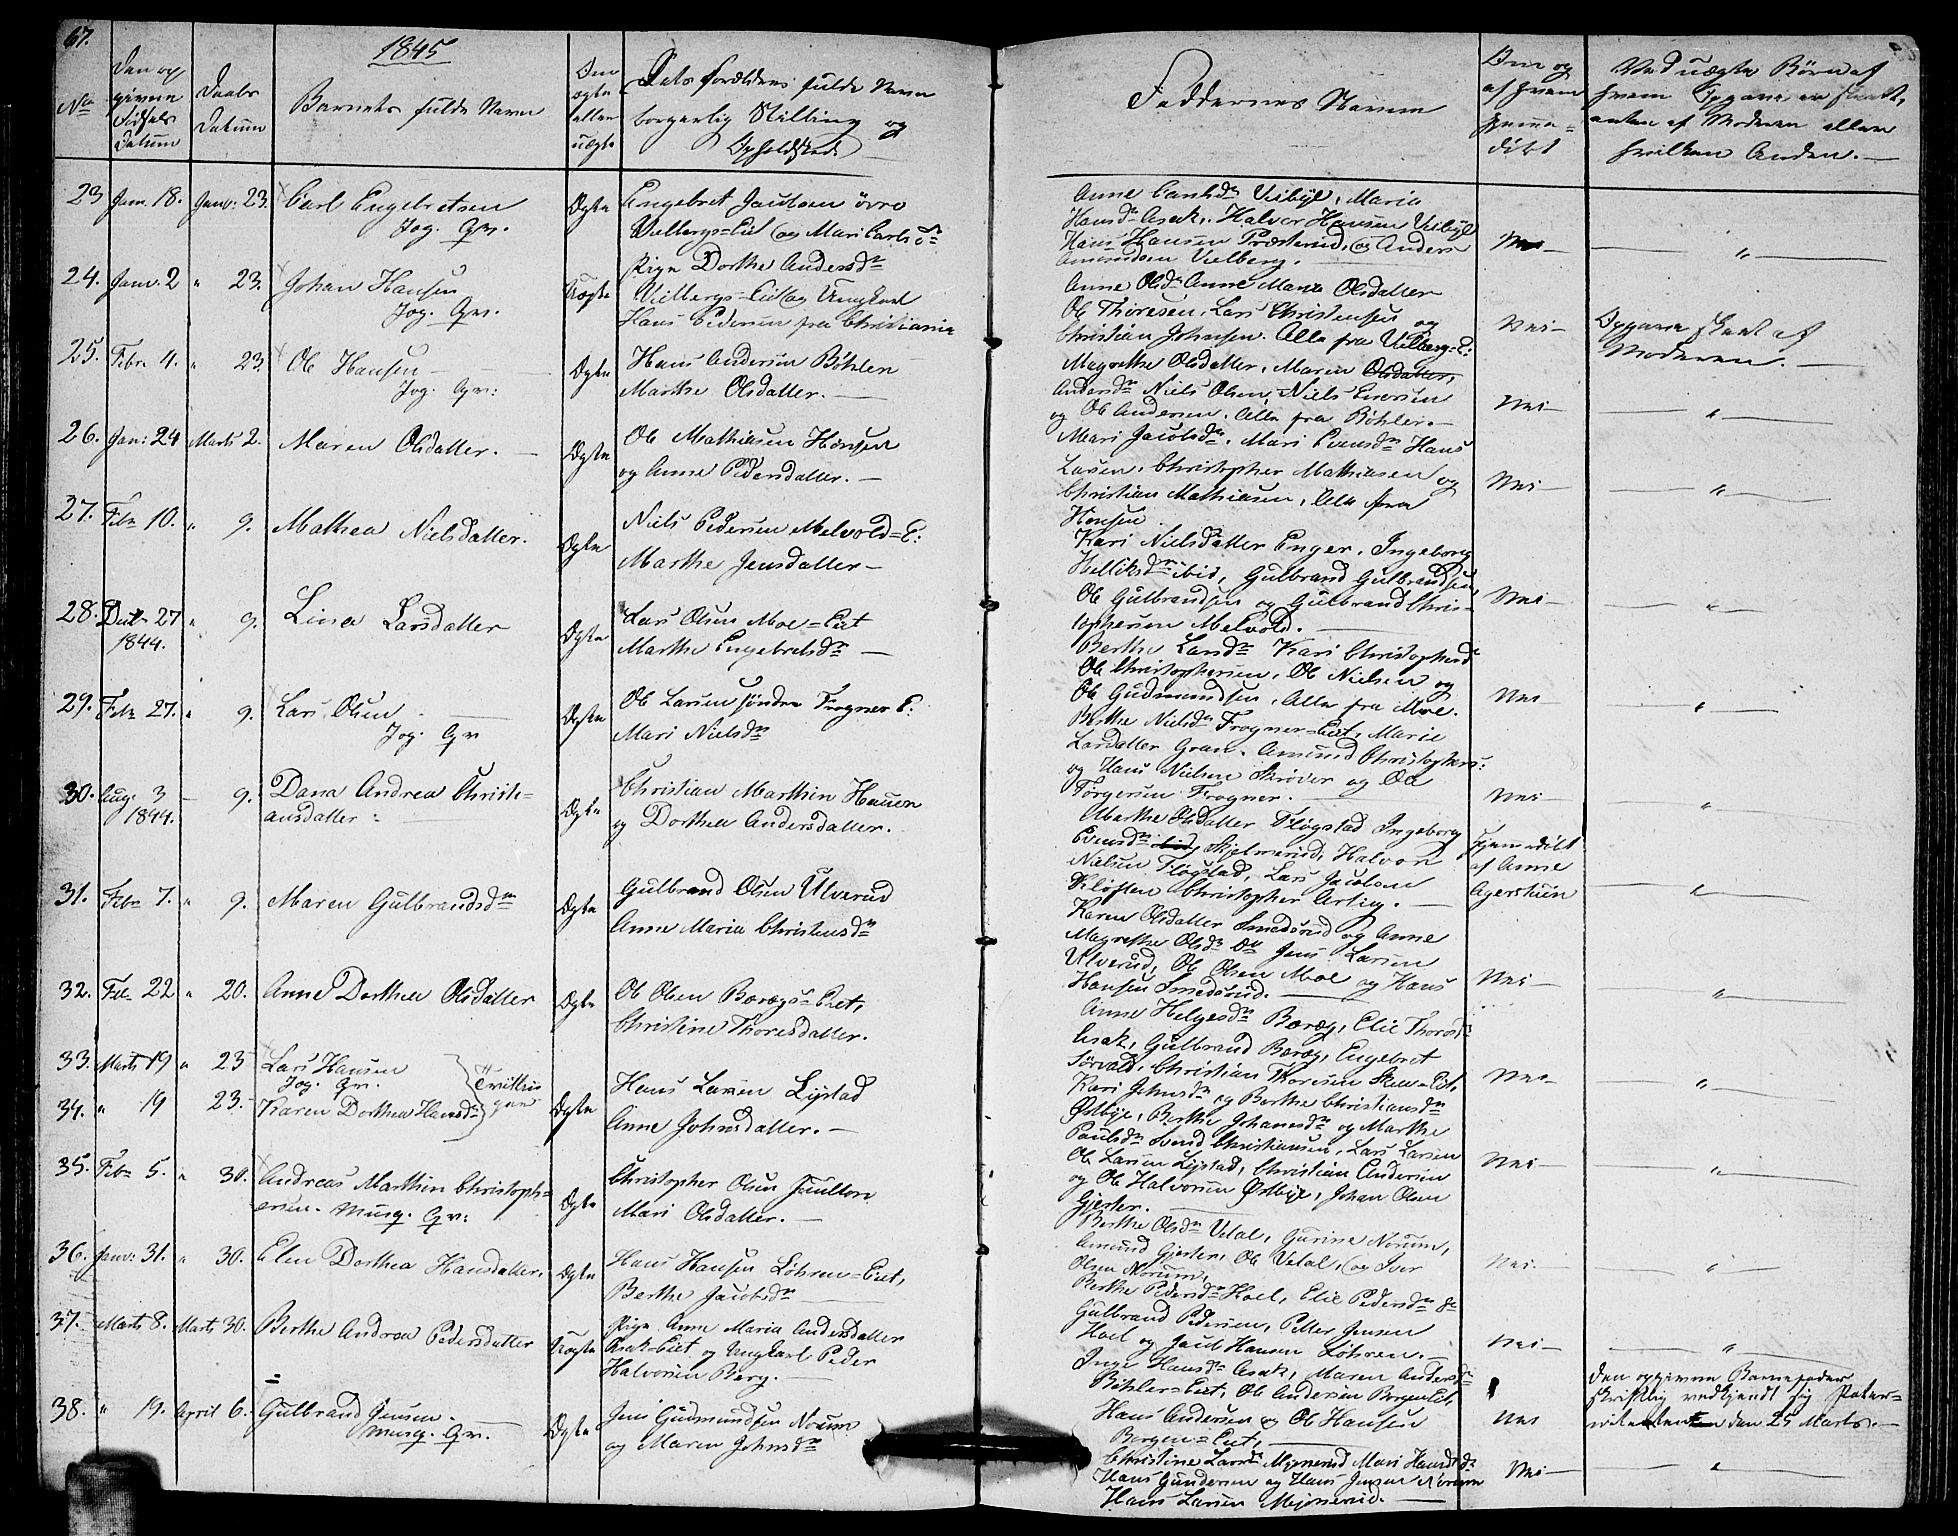 67.
1845
No
Den opgivne Fødsels Datum
Daabs Datum
Barnets fulde Navn
Om ægte eller uægte
Dets Forældres fulde Navn
borgerlig Stilling og
Opholdsted
Faddernes Navne
Om og af hvem hjemmedøbt
Ved uægte Børn af
hvem Opgave er skeet,
enten af Moderen eller
hvilken Anden.
23 Jan. 18. Janv: 23. Carl Engebretsen
Jog. Qv.
Ægte
Engebret Paulsen øvre
Vilbergs=Eiet og Mari Carlsd
Anne Carlsdr Visbye, Maria
Hansdr Asak, Halvor Hansen Visbye
Hans Hansen Præsterud, og Anders
Amundsen Vilberg.
Nei
24. Janv. 2 " 23. Johan Hansen
Jog. Qv.
Uægte
Pige Dorthe Andersdr
Vilbergs=Eiet og Ungkarl
Hans Pedersen fra Christiania
Anne Olsdr Anne Maria Olsdatter
Ole Thoresen, Lars Christensen og
Christian Johnsen. Alle fra Vilberg=E:
Nei
Opgave skeet af
Moderen.
25. Febr. 4. " 23. Ole Hansen
Jog. Qv:
Ægte
Hans Andersen Bøhler
Marthe Olsdatter.
Magrethe Olsdatter, Maren Olsdatter,
Andersdr Niels Olsen, Niels Iversen
og Ole Andersen. Alle fra Bøhler.
Nei
26. Jan: 24 Marts 2. Maren Olsdatter.
Ægte
Ole Mathiasen Hønsen
og Anne Pedersdatter.
Mari Jacobsdr, Mari Evensdr Hans
Larsen, Christopher Mathiasen og
Christian Mathiasen, Alle fra
Hønsen.
Nei
27. Febr 10. " 9. Mathea Nielsdatter.
Ægte
Niels Pedersen Melvold=E:
Marthe Jensdatter
Kari Nielsdatter Enger, Ingeborg
Helliksdr ibid, Gulbrand Gulbrandsen,
Ole Gulbrandsen og Gulbrand Chris-
tophersen Melvold.
Nei
28. Decbr 27 1844. " 9. Lina Larsdatter
Ægte
Lars Olsen Moe=Eiet
Marthe Engebretsdr
Berthe Larsdr Kari Christophersd
Ole Christophersen, Ole Nielsen og
Ole Gudmundsen, Alle fra Moe.
Nei
29. Febr 27. " 9. Lars Olsen
Jog. Qv
Ægte
Ole Larsen søndre Frogner E:
Mari Nielsdr
Berthe Nielsdr Frogner=Eiet, Marie
Larsdatter Gran, Amund Christophers:
og Hans Nielsen Skrøver og Ole
Torgersen Frogner.
Nei
30. Aug. 3 1844. 9. Dana Andrea Christi-
ansdatter
Ægte
Christian Marthin Hauen
og Dorthea Andersdatter.
Marthe Olsdatter Fløgstad Ingeborg
Evensdr ibid, Skjelmerud, Halvor
Nielsen Fløgstad, Lars Jacobsen
Kløften Christopher Arteig.
Hjemmedøbt
af Anne
Agerstuen
31. Febr 7. " 9. Maren Gulbrandsdr
Ægte
Gulbrand Olsen Ulverud
Anne Maria Christensdr
Karen Olsdatter Smedsrud og Anne
Magrethe Olsdr Do Jens Larsen
Ulverud, Ole Olsen Moe og Hans
Hansen Smedsrud.
Nei
32. Feb. 22 " 20. Anne Dorthea Olsdatter
Ægte
Ole Olsen Boregs=Eiet,
Christine Thoresdatter.
Anne Helgesdr Boræg, Elie Thoresdr
Asak, Gulbrand Boræg, Engebret
Sørvald, Christian Thoresen Skea=Eiet,
Nei
33. Marts 19 " 23 Lars Hansen
Jog. Qv.
34. " 19 23. Karen Dorthea Hansdr
Tvillin
gene
Ægte
Hans Larsen Lystad
Anne Johnsdatter.
Kari Johnsdr og Berthe Christiansdr
Østbye, Berthe Johannesdr og Marthe
Paulsdr Svend Christiansen, Lars Larsen
Ole Larsen Lystad, Christian Andersen
og Ole Halvorsen Østbye, Johan Olsen
Gjester.
Nei
35. Febr 5. " 30. Andreas Marthin Christoph-
ersen. Musq. Qv:
Ægte
Christopher Olsen
Mari Olsdatter.
Berthe Olsdr Vetal, Gurine Norum,
Amund Gjester, Ole Vetal, og Iver
Olsen Norum,
Nei
36. Janv: 31. " 30. Elen Dorthea Hansdatter.
Ægte
Hans Hansen Løhren=Eiet,
Berthe Jacobsdr
Berthe Pedersdr Hoel, Elie Pedersdr do
Gulbrand Pedersen, Petter Jensen
Hoel og Jacob Hansen Løhren.
Nei
37. Marts 8. Marts 30. Berthe Andrea Pedersdatter
Uægte
Pige Anne Maria Andersdatter
Asak=Eiet og Ungkarl Peder
Halvorsen Berg.
Inge Hansdr Asak, Maren Andersdr
Bøhler=Eiet, Ole Andersen Bergen Eiet,
Hans Andersen og Ole Hansen
Bergen=Eiet,
Nei
Den opgivne Barnefader
skriftlig vedkjendt sig Pater-
niteten den 25 Marts.
38. " 19. April 6. Gulbrand Jensen.
Musq. Qv.
Ægte
Jens Gudmundsen Norum
og Maren Johnsdr
Christine Larsdr Mjønerud Mari Hansdr do
Hans Gundersen og Hans Jensen Norum
Hans Larsen Mejonerud.
Nei